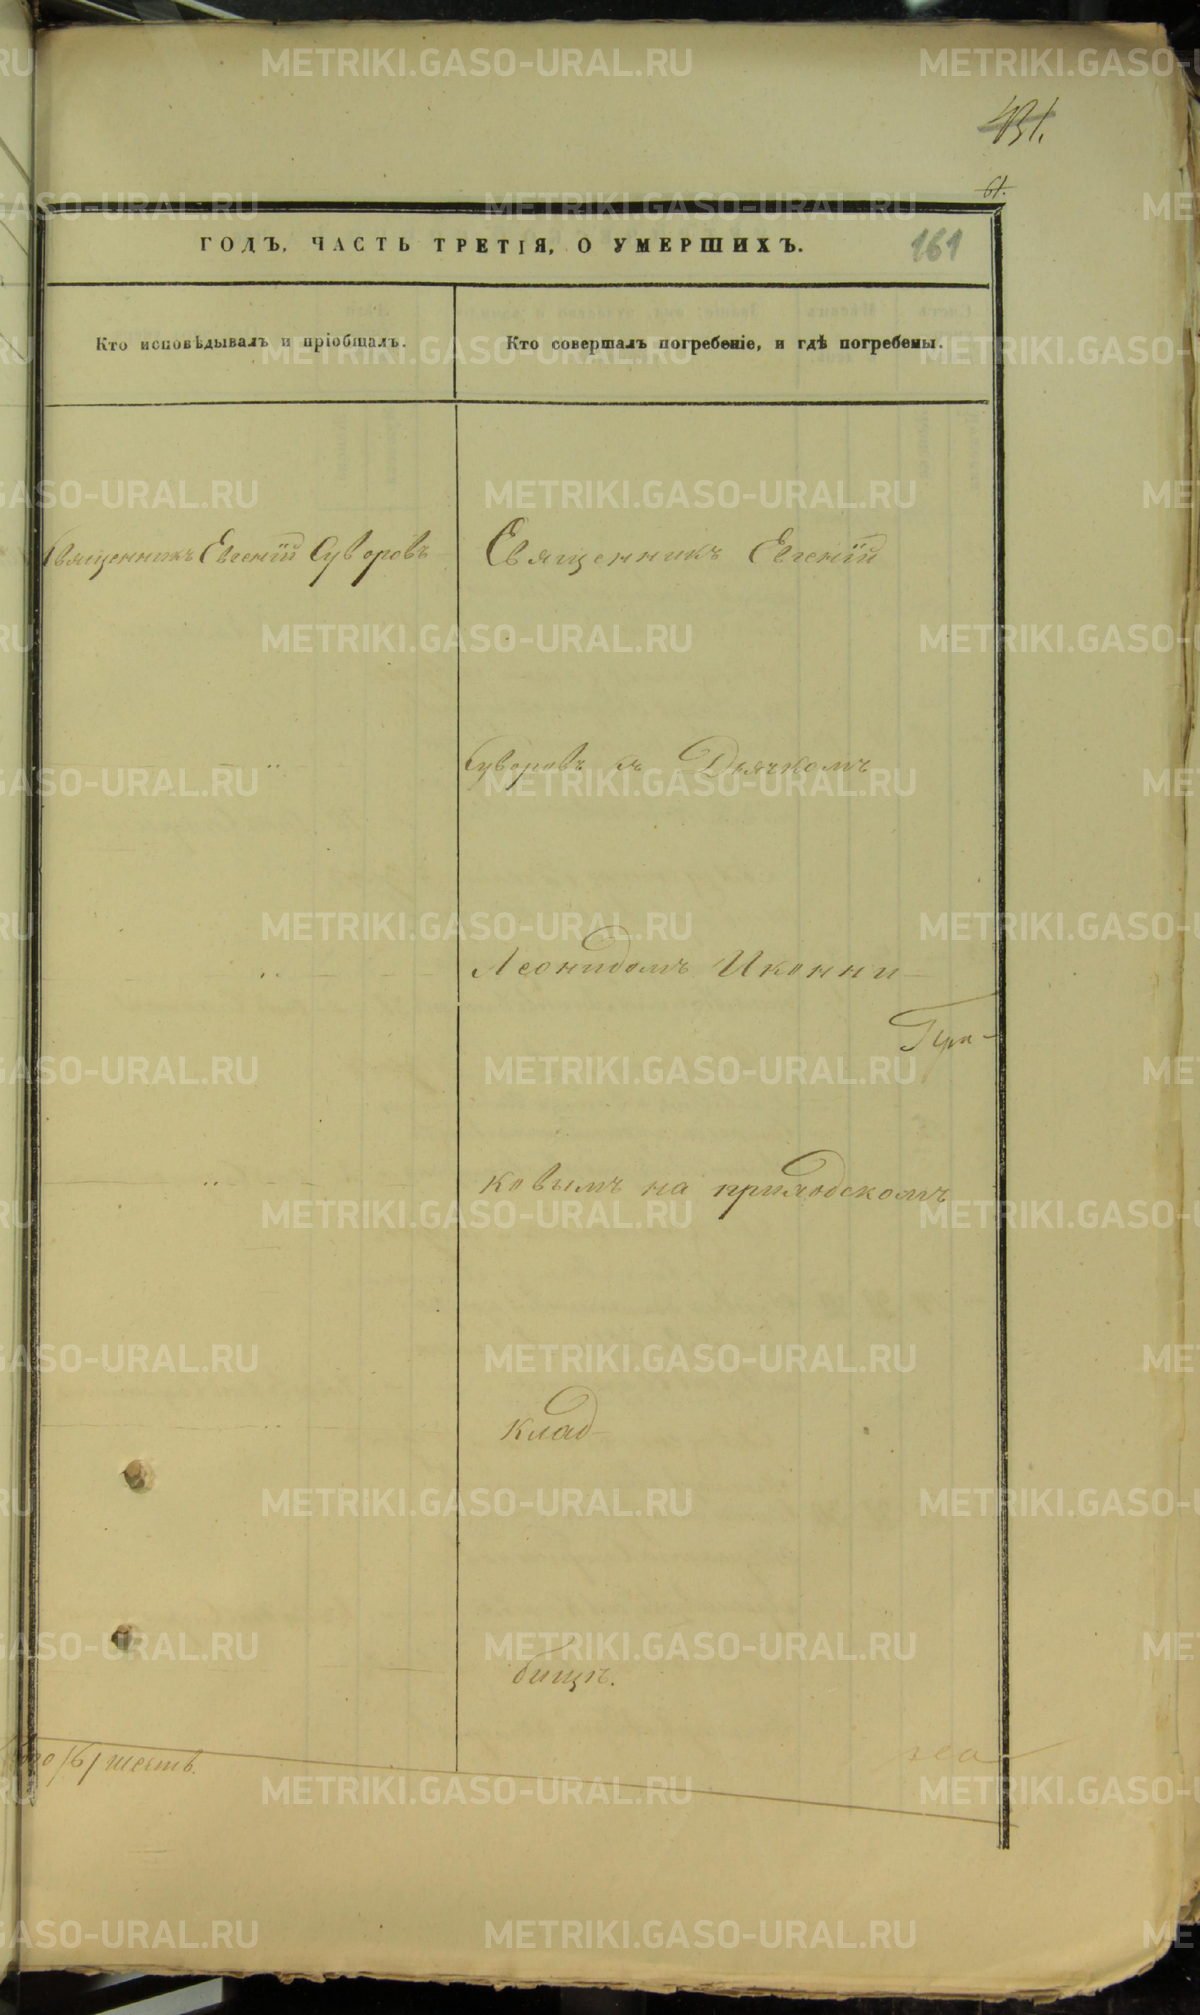 431.
61.
ГОДЪ, ЧАСТЬ ТРЕТІЯ, О УМЕРШИХЪ.
161
Кто исповѣдывалъ и пріобщалъ.
Кто совершалъ погребеніе, и гдѣ погребены.
Священникъ Евгеній Суворовъ
Священникъ Евгеній
Суворовъ съ Дьячкомъ
Леонидомъ Иконни-
ковымъ на приходскомъ
клад-
бищѣ.
/6/ шесть.
METRIKI.GASO-URAL.RU